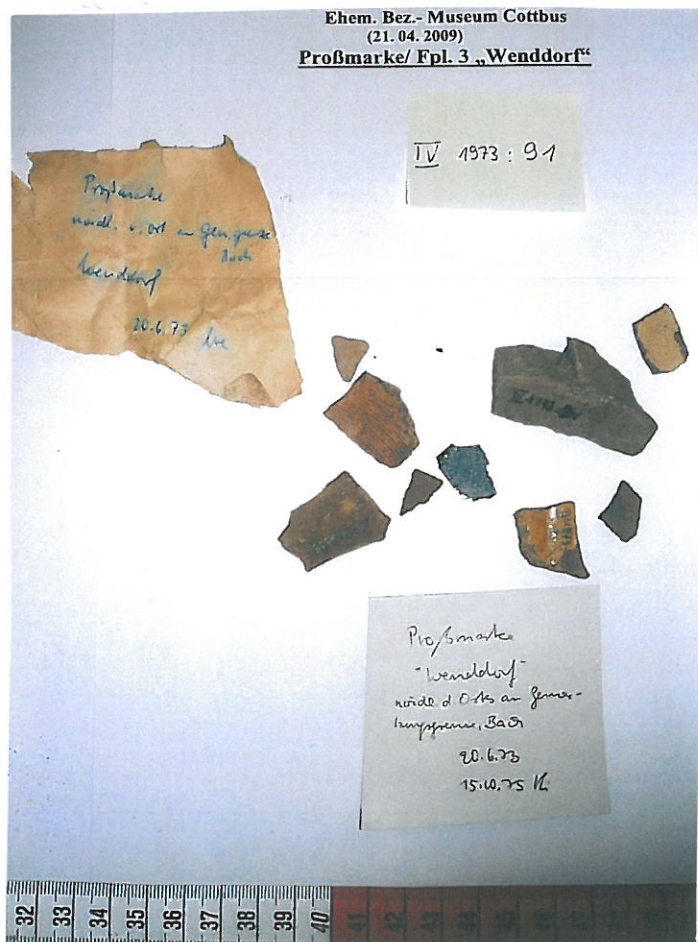 Ehem. Bez.- Museum Cottbus
(21. 04. 2009)
Proßmarke/ Fpl. 3 „Wenddorf“
IV 1973 : 91
Proßmarke
nördl. v. Ort an Gem.grenze
Bach
Wenddorf
20.6.73
Proßmarke
"Wenddorf"
nördl d Orts an Gemar-
kungsgrenze, Bach
20.6.73
15.10.75
32 33 34 35 36 37 38 39 40 41 42 43 44 45 46 47 48